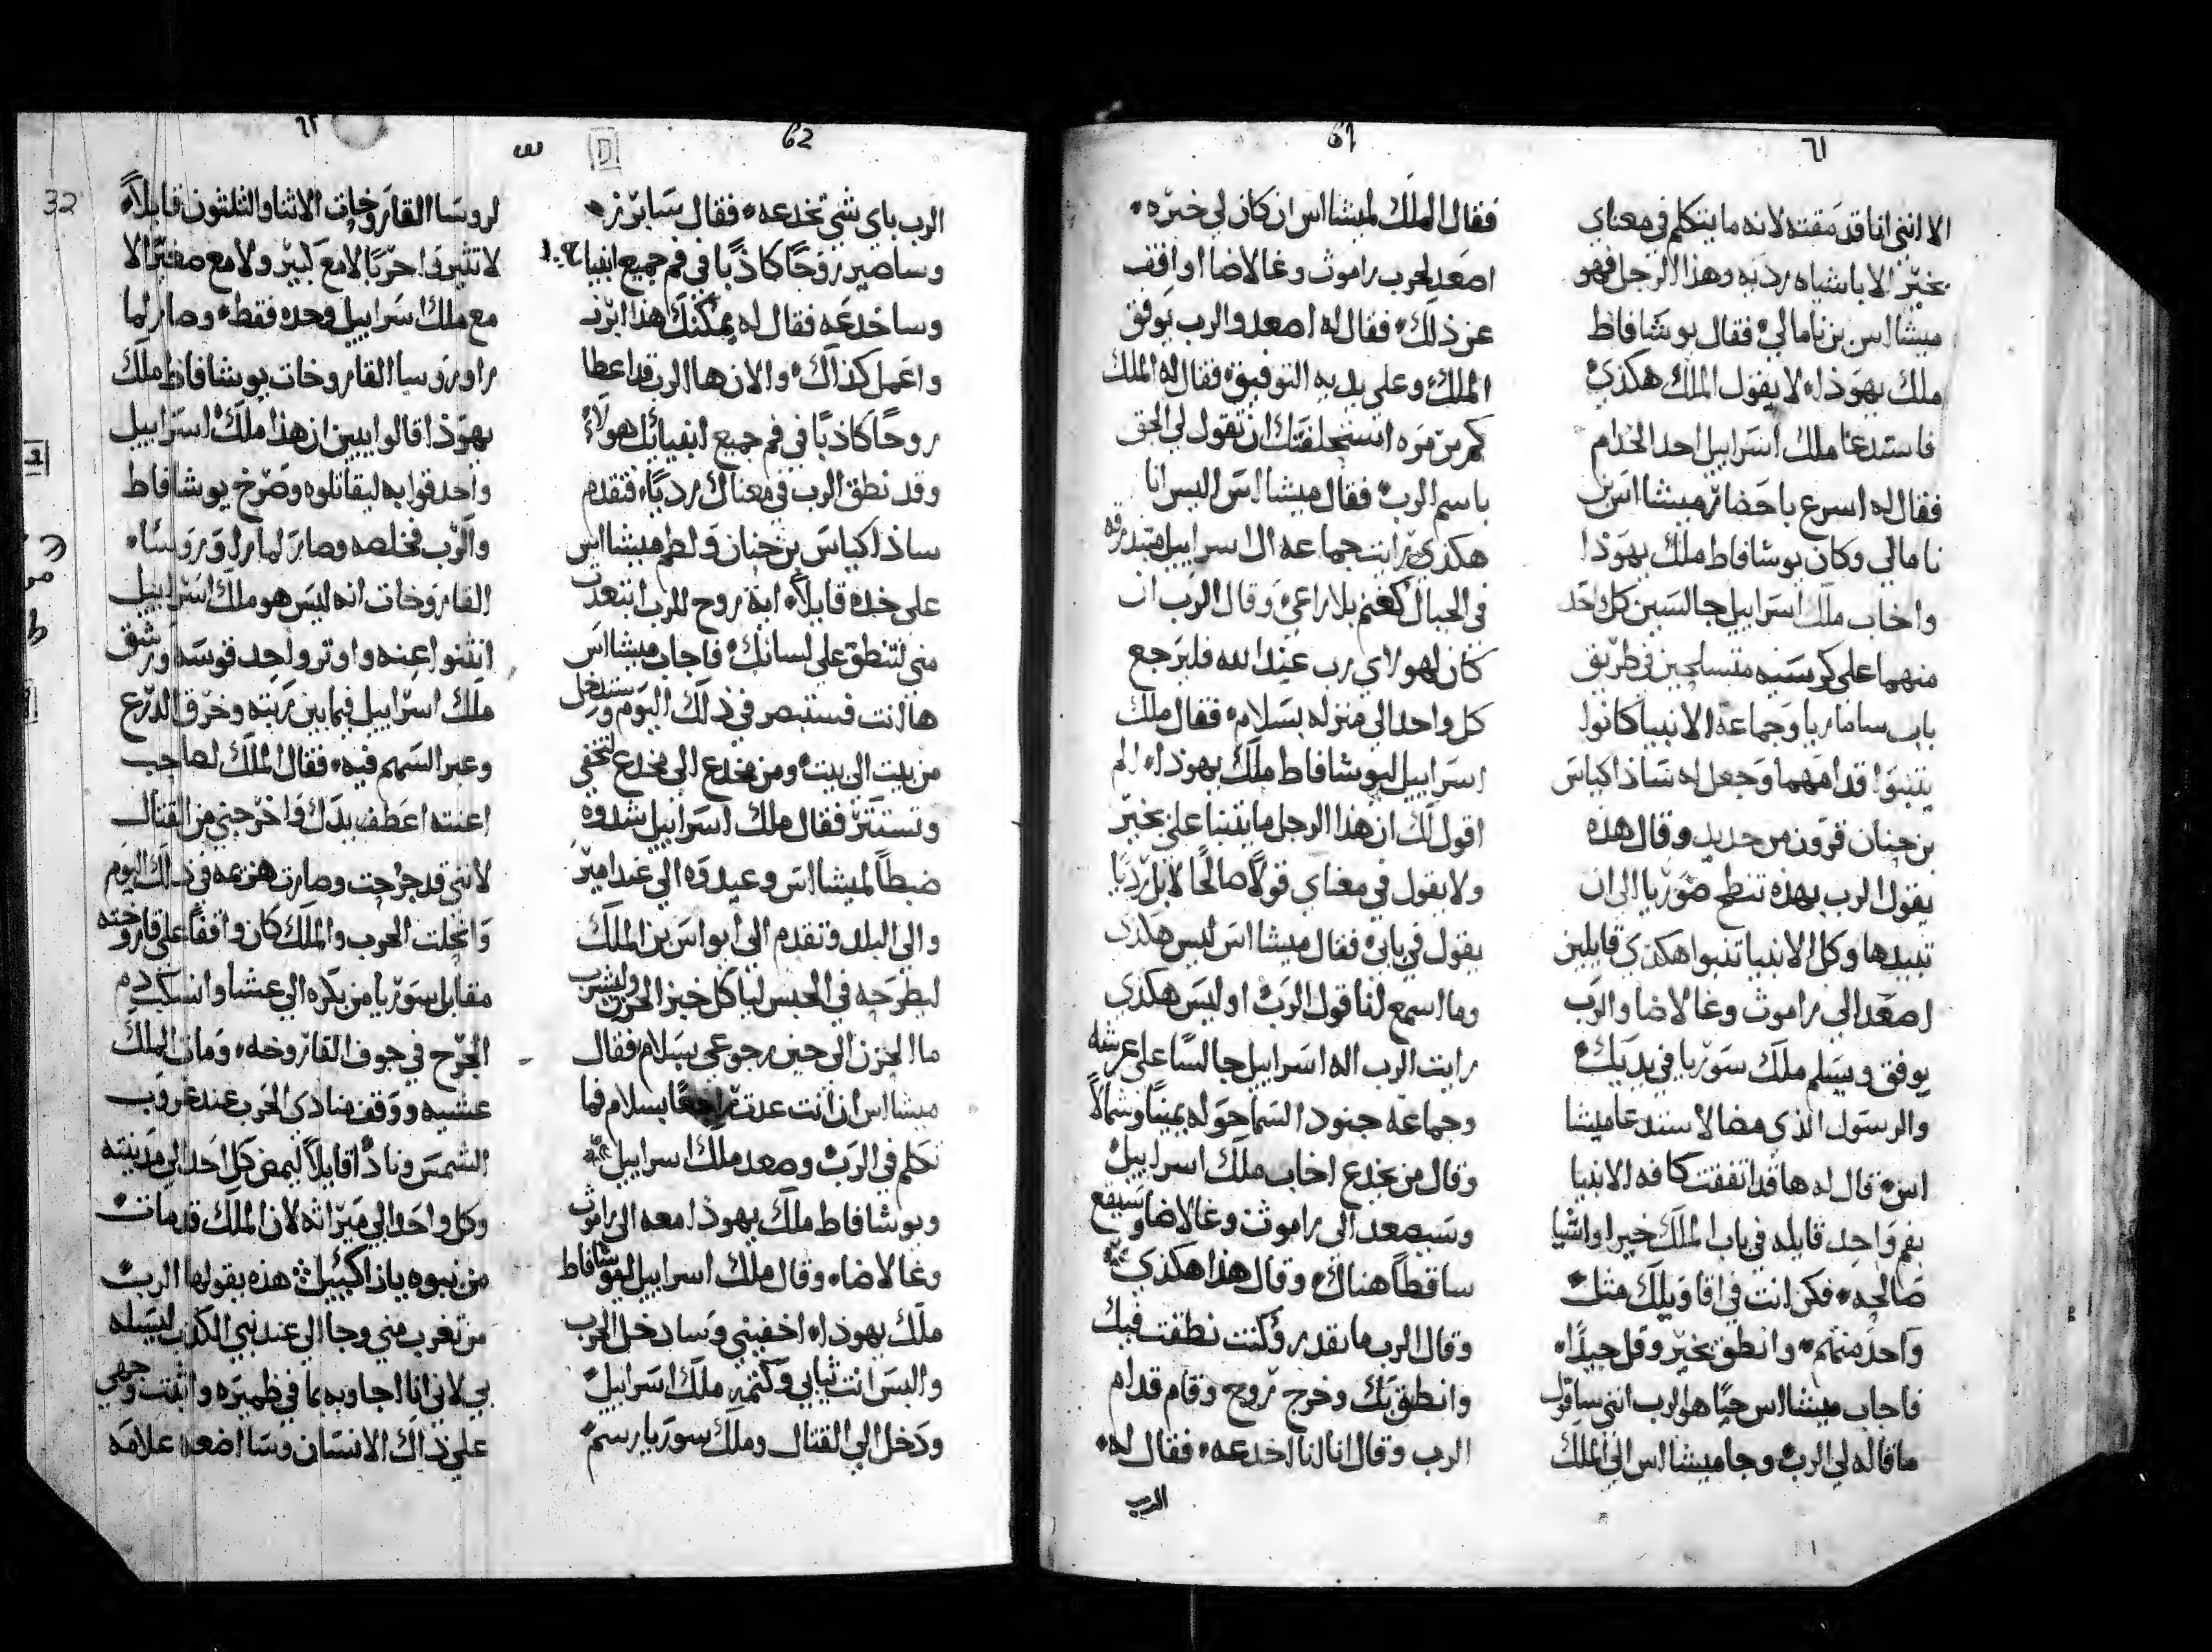 ٦١
61
الا انني انا قد مقته لانه ما يتكلم في معناي
بخير الا باشياه رديه وهذا الرجل فهو
ميشااس بن نامالي فقال يوشافاظ
ملك يهوذا لا يقول الملك هكذي
فاستدعا ملك اسراييل احد الخدام
فقال له اسرع باحضار ميشااس بن
نامالي وكان يوشافاط ملك يهوذا
واخاب ملك اسراييل جالسين كل واحد
منهما على كرسيه متسلحين في طريق
باب ساماريا وجماعة الانبيا كانوا
يتنبوا قدامهما وجعل له ساذاكياس
بن حنان قرون من حديد وقال هذه
يقول الرب بهذه تنطح سوريا الى ان
تبيدها وكل الانبيا تنبوا هكذي قايلين
اصعد الى راموث وغالاضا والرب
يوفق ويسلم ملك سوريا في يديك
والرسول الذي مضا لاستدعا ميشا
اس قال له ها قد اتفقت كافه الانبيا
بفم واحد قايله في باب الملك خيرا واشيا
صالحه فكن انت في اقاويلك مثل
واحد منهم وانطق بخير وقل جيدا
فاجاب ميشااس حيا هو الرب انني ساقول
ما قاله لي الرب وجا ميشااس الى الملك
فقال الملك لميشااس ان كان لي خيره
اصعد لحرب راموث وغالاضا او اقف
عن ذلك فقال له اصعد والرب يوفق
الملك وعلى يديه التوفيق فقال له الملك
كم من مره استحلفتك ان تقول لي الحق
باسم الرب فقال ميشااس اليس انا
هكذي رايت جماعه ال اسراييل متبدده
في الجبال كغنم بلا راعي وقال الرب ان
كان لهولاي رب عند الله فليرجع
كل واحد الى منزله بسلام فقال ملك
اسراييل ليوشافاط ملك يهوذا الم
اقول لك ان هذا الرجل ما يتنبا علي بخير
ولا يقول في معناي قولا صالحا لا بل رديا
يقول في بابي فقال ميشااس ليس هكذي
وما اسمع لنا قول الرب او ليس هكذي
رايت الرب اله اسراييل جالسا على عرشه
وجماعة جنود السما حوله يمينا وشمالا
وقال من يخدع اخاب ملك اسراييل
وسيصعد الى راموث وغالاضا وسيقع
ساقطا هناك وقال هذا هكذي
وقال الرب ما تقدر وكنت نطقت فيك
وانطق بك وخرج روح وقام قدام
الرب وقال انا لنا اخدعه فقال له
الرب
62
٦٢
32
الرب باي شي تخدعه فقال سابرز
وساصير روحا كاذبا في فم جميع انبيا
وساخدعه فقال له يمكنك هذا ابرز
واعمل كذاك والان ها الرب قد اعطا
روحا كاذبا في فم جميع انبيائك هولاء
وقد نطق الرب في معناك رديا فتقدم
ساذاكياس بن حنان ولطم ميشااس
على خده قايلا اية روح للرب ابتعدت
مني لتنطق على لسانك فاجاب ميشااس
ها انت فستبصر في ذلك اليوم وستدخل
من بيت الى بيت ومن مخدع الى مخدع لتختفي
وتستتر فقال ملك اسراييل شدوه
ضبطا لميشااس وعيدوه الى عند امير
والى البلد وتقدم الى ابواس بن الملك
ليطرحه في الحبس لياكل خبز الحزن وليشرب
ما الحزن الى حين رجوعي بسلام فقال
ميشااس ان انت عدت راجعا بسلام فما
تكلم في الرب وصعد ملك اسراييل
ويوشافاط ملك يهوذا معه الى راموث
وغالاضا وقال ملك اسراييل ليوشافاط
ملك يهوذا اخفيني وسادخل الحرب
والبس انت ثيابي وكتم ملك اسراييل
ودخل الى القتال وملك سوريا رسم
لروسا القاروخات الاثنا والثلثون قايلا
لا تثيروا حربا لا مع كبير ولا مع صغير الا
مع ملك اسراييل وحده فقط وصار لما
راو روسا القاروخات يوشافاط ملك
يهوذا قالوا يبين ان هذا ملك اسراييل
واحدقوا به ليقاتلوه وصرخ يوشافاط
والرب فخلصه وصار لما راو روسا
القاروخات انه ليس هو ملك اسراييل
انثنوا عنه واوتر واحد قوسه ورشق
ملك اسراييل فيما بين ريته وخرق الدرع
وعبر السهم فيه فقال الملك لصاحب
اعنته اعطف يدك واخرجني من القتال
لانني قد جرحت وصارت هزيمه في ذلك اليوم
وانجلت الحرب والملك كان واقفا على قاروخته
مقابل سوريا من بكره الى عشا وانسكب دم
الجرح في جوف القاروخه ومات الملك
عشيه ووقف منادي الحرب عند غروب
الشمس ونادا قايلا ليمض كل احد الى مدينته
وكل واحد الى ميراثه لان الملك قد مات
من نبوه يازاكييل هذه يقولها الرب
من تغرب مني وجا الى عند نبي الكذب ليسله
بي لاني انا اجاوبه بما في ظميره واثبت وجهي
على ذاك الانسان وسااضعه علامه